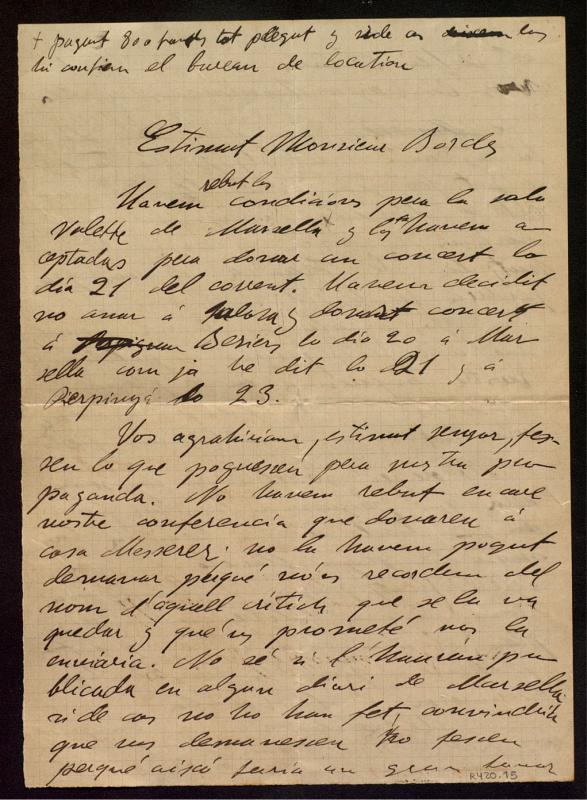 + pagant 800 franchs tot plegat y si de cas las
hi confien el bureau de location
Estimat Monsieur Bordes
Havem rebut las condicions pera la sala
Valette de Marsella y las havem ac
ceptadas pera donar un concert lo
dia 21 del corrent. Havem decidit
no anar á y donar concert
á Beziers lo dia 20 á Mar
sella com ja he dit lo 21 y á
Perpinyá lo 23.
Vos agrahiriam, estimat senyor, fes-
sen lo que poguessen pera nostra pro
paganda. No havem rebut encare
nostre conferencia que donaren á
casa Messerer; no la havem pogut
demanar perqué no'ns recordem del
nom d'aquell critich que se la va
quedar y que'ns prometé nos la
enviaria. No sé si l'haurán pu
blicada en algun diari de Marsella
si de cas no ho han fet convindria
que nos demanessen ho fessen
perqué aixó faria un gran
R420.15